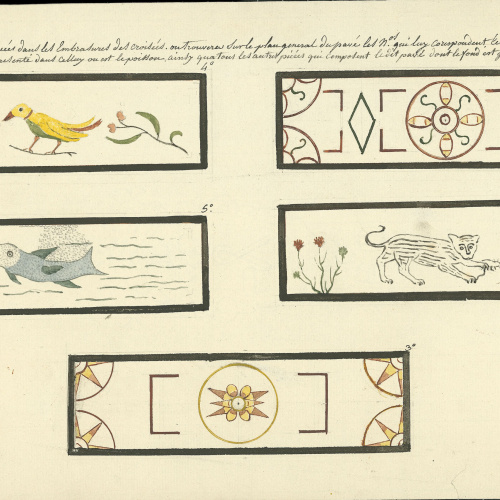 dans les Embrasures des Croisées. on trouvera sur le plan general du pavé les N.os qui luy corespondent, le
dans celluy ou est le poisson, ainsy que tous les autres pieces qui composent le dit pavé dont le fond est
4°
5°
3°